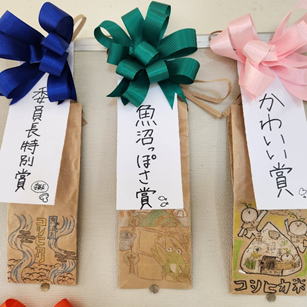 委員長特別賞
魚沼っぽさ賞
かわいい賞
コシヒカリ
コシヒカリ